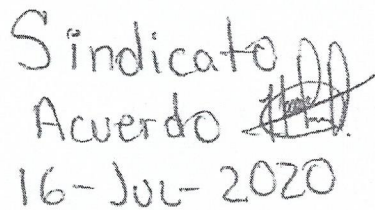 Sindicato
Acuerdo
16-JUL-2020